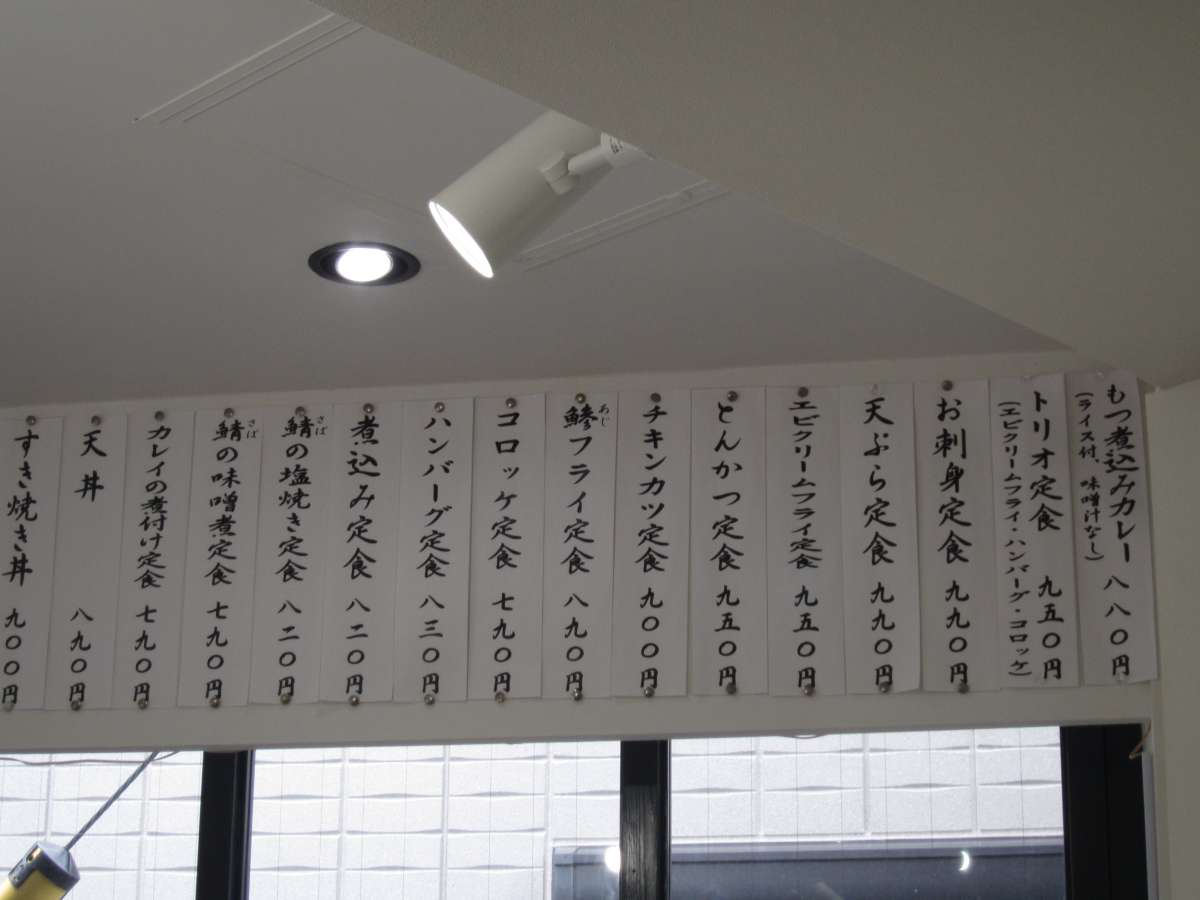 もつ煮込みカレー 八八〇円
（ライス付、味噌汁なし）
トリオ定食 九五〇円
（エビクリームフライ・ハンバーグ・コロッケ）
お刺身定食 九九〇円
天ぷら定食 九九〇円
エビクリームフライ定食 九五〇円
とんかつ定食 九五〇円
チキンカツ定食 九〇〇円
鯵フライ定食 八九〇円
あじ
コロッケ定食 七九〇円
ハンバーグ定食 八三〇円
煮込み定食 八二〇円
鯖の塩焼き定食 八二〇円
さば
鯖の味噌煮定食 七九〇円
さば
カレイの煮付け定食 七九〇円
天丼 八九〇円
すき焼き丼 九〇〇円